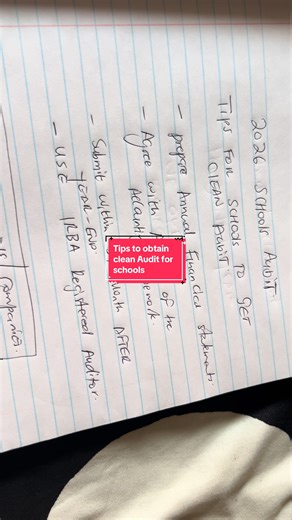 2026 SCHOOLS AUDIT
TIPS FOR SCHOOLS TO GET
CLEAN AUDIT
- prepare Annual Financial statements
of the
- Agree with
Accounti
- Submit within month AFTER
YEAR-END
- USE IRBA Registered Auditor.
Companies.
Tips to obtain
clean Audit for
schools